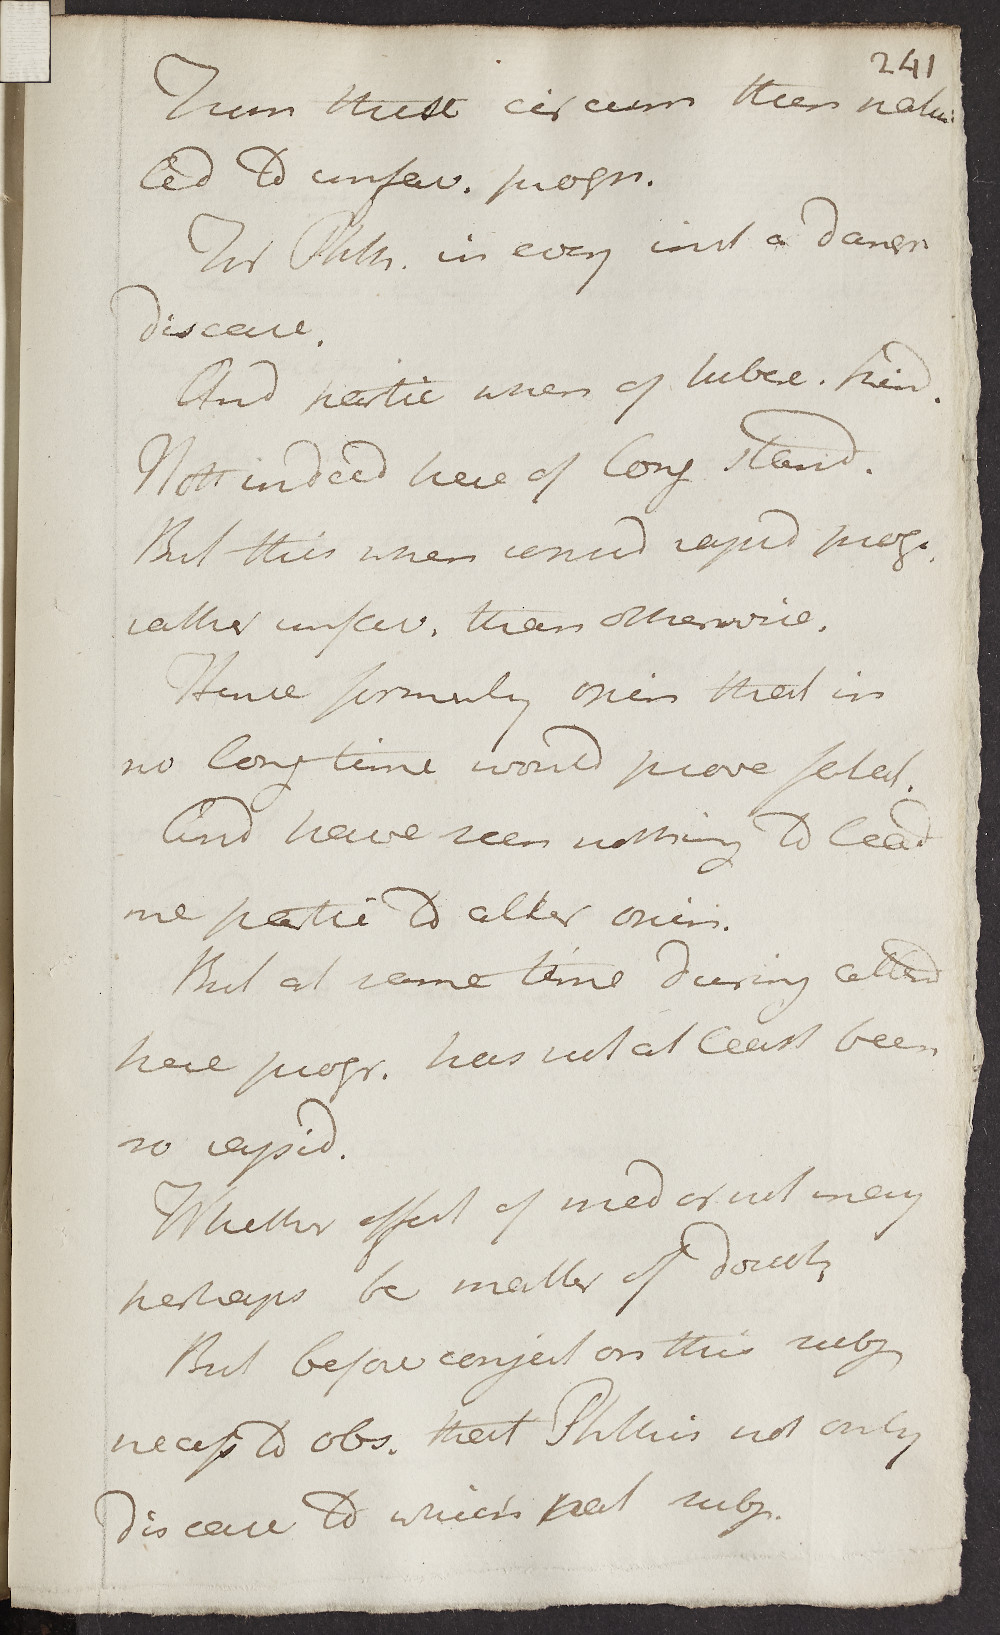 241
From these circum then natur
led to unfav. progn.
For Phth. in every inst a danger
disease.
And partic when of tuberc. kind.
Not indeed here of long stand.
But this when consid rapid progr.
rather unfav. than otherwise.
Hence formerly opin that in
no long time would prove fatal.
And have seen nothing to lead
me partic to alter opin.
But at same time during attend
here progr. has not at least been
so rapid.
Whether effect of med or not may
perhaps be matter of doubt,
But before conject on this subj
necess to obs. that Phthis not only
disease to which pat subj.